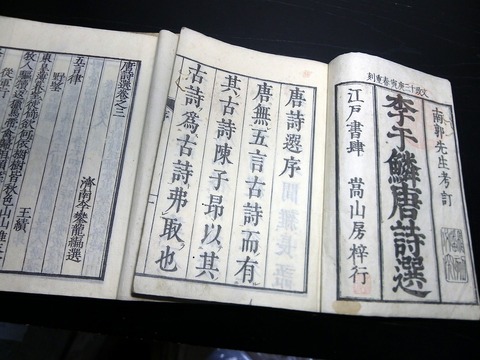 文政十三庚寅春重刻
南郭先生考訂
李于鱗唐詩選
江戸書肆 嵩山房梓行
唐詩選序
唐無五言古詩而有
其古詩陳子昂以其
古詩為古詩弗取也
唐詩選巻之三
濟南李攀龍編選
五言律
野望 王績
東皐薄暮望徙倚欲何依樹樹皆秋色山山唯
牧人驅犢返獵馬帶禽歸